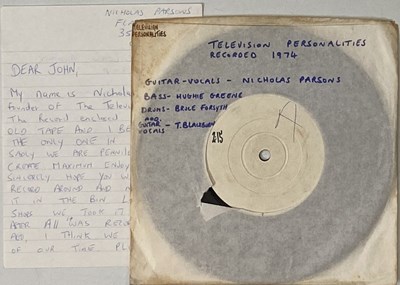 NICHOLAS PARSONS
35
DEAR JOHN,
My name is Nicholas
founder of The Televi
The Record enclosed
OLD TAPE AND I BE
THE ONLY ONE IN
SADLY WE ARE PENNILE
CREATE MAXIMUM
SINCERELY HOPE YOU W
RECORD AROUND AND
IT IN THE BIN L
SHOW WE TOOK IT
AFTER ALL IT WAS RECOR
AND, I THINK WE
OF OUR TIME PL
TELEVISION
PERSONALITIES
TELEVISION PERSONALITIES
RECORDED 1974
GUITAR-VOCALS - NICHOLAS PARSONS
BASS- HUGHIE GREENE
DRUMS- BRUCE FORSYTH
ADD.
GUITAR - T. BLACKBURN
VOCALS
A